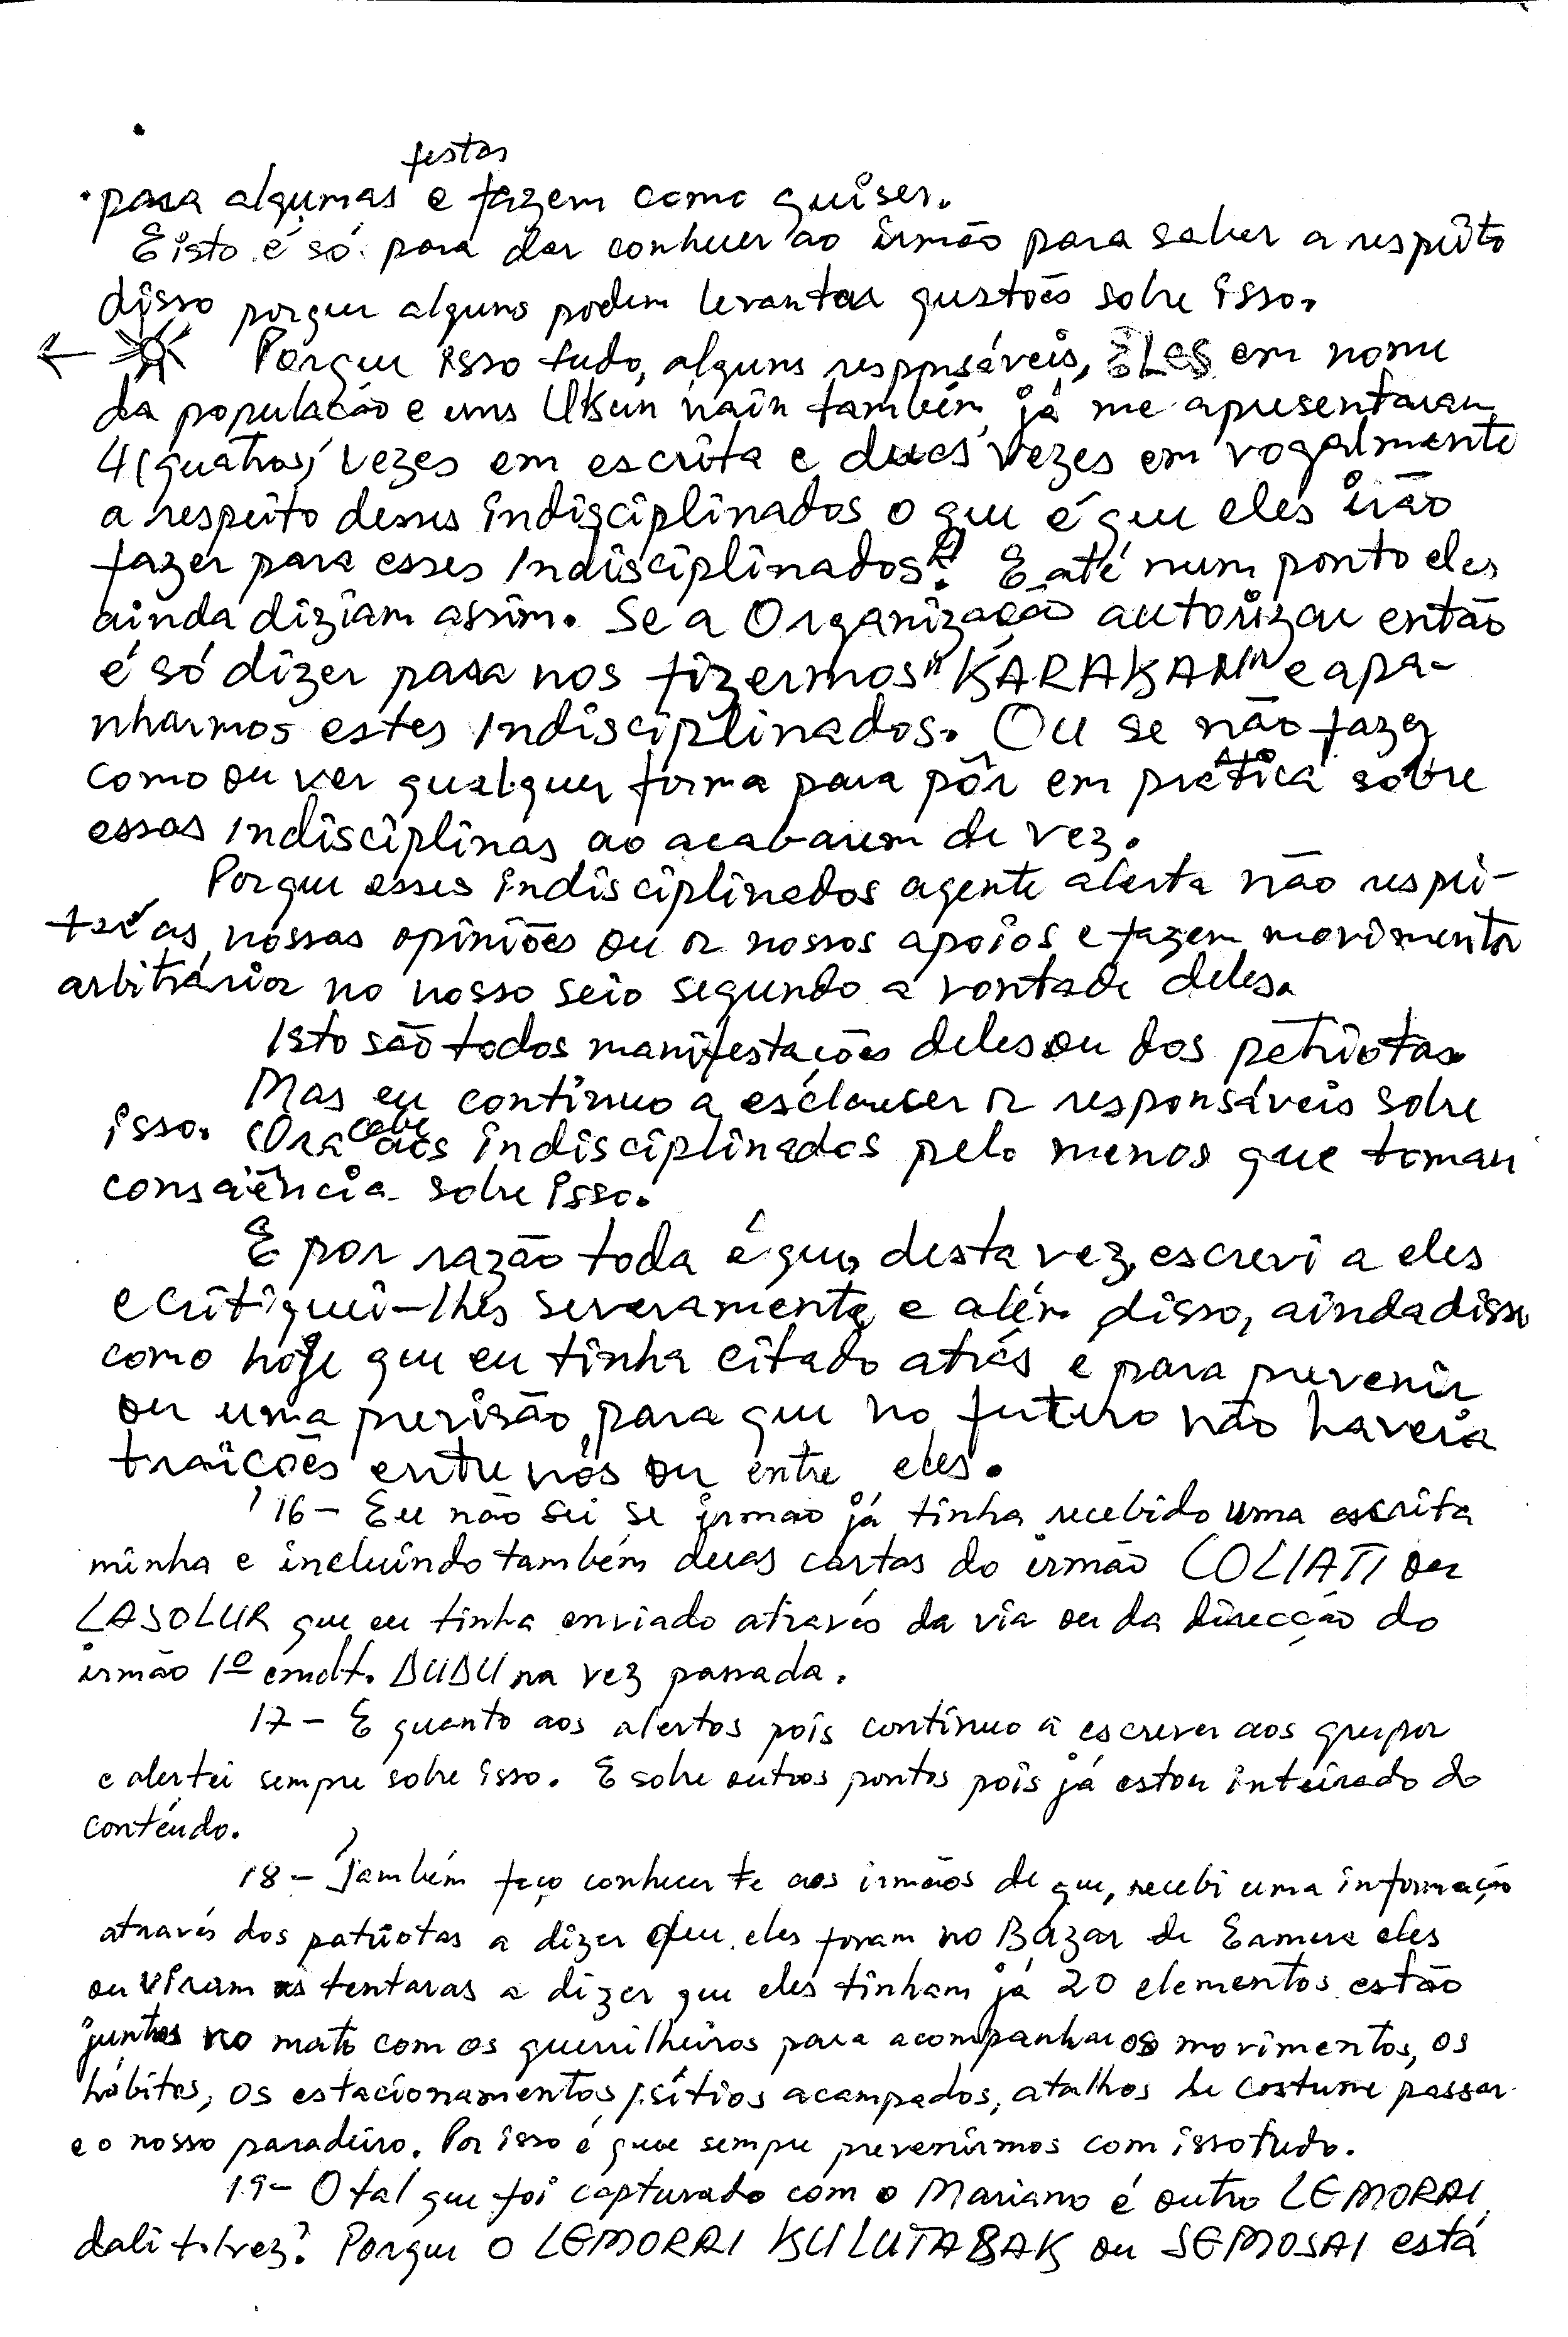 festas
para algumas e fazem como quiser.
E isto é só para dar conhecer ao irmão para saber a respeito
disso porque alguns podem levantar questões sobre isso.
Porque isso tudo, alguns responsáveis, ELES em nome
da população e uns Ukun nain também já me apresentaram
4 (quatros) vezes em escrita e duas vezes em vogalmente
a respeito desses indisciplinados o que é que eles irão
fazer para esses indisciplinados? E até num ponto eles
ainda diziam assim. Se a Organização autorizar então
é só dizer para nos fizermos "KARAKAN" e apa-
nharmos estes indisciplinados. Ou se não fazer
como ou ver qualquer forma para pôr em prática sobre
essas indisciplinas ao acabarem de vez.
Porque esses indisciplinados agente alerta não respei-
tar as nossas opiniões ou os nossos apoios e fazem movimentos
arbitrários no nosso seio segundo a vontade deles.
Isto são todos manifestações deles ou dos patriotas.
Mas eu continuo a esclarecer os responsáveis sobre
isso. Ora cabe aos indisciplinados pelo menos que tomar
consciência sobre isso.
E por razão toda é que, desta vez, escrevi a eles
e critiquei-lhes severamente e além disso, ainda disse
como hoje que eu tinha citado atrás e para prevenir
ou uma previsão para que no futuro não haveria
traições entre nós ou entre eles.
16- Eu não sei se irmão já tinha recebido uma escrita
minha e incluindo também duas cartas do irmão COLIATI ou
LASOLUR que eu tinha enviado através da via ou da direcção do
irmão 1º cmdt. DUDU na vez passada.
17- E quanto aos alertos pois continuo a escrever aos grupos
e alertei sempre sobre isso. E sobre outros pontos pois já estou inteirado do
contéudo.
18- Também faço conhecer-te aos irmãos de que, recebi uma informação
através dos patriotas a dizer que eles foram no Bazar de Ermera eles
ouviram as tentaras a dizer que eles tinham já 20 elementos estão
juntos no mato com os guerrilheiros para acompanhar os movimentos, os
hábitos, os estacionamentos, sítios acampados, atalhos de costume passar
e o nosso paradeiro. Por isso é que sempre prevenirmos com isso tudo.
19- O tal que foi capturado com o Mariano é outro LEMORAI
dali talvez? Porque o LEMORAI KULUTABAK ou SEMOSAI está